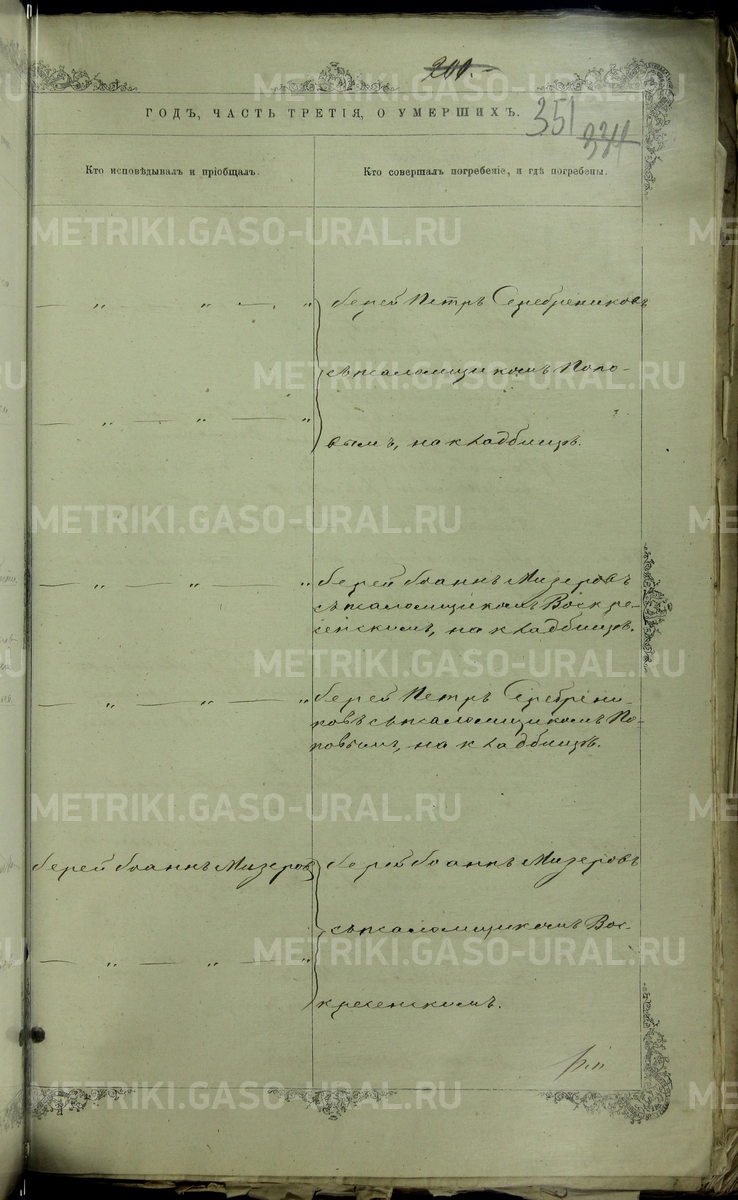 200.
ГОДЪ, ЧАСТЬ ТРЕТІЯ, О УМЕРШИХЪ.
351
Кто исповѣдывалъ и пріобщалъ.
Кто совершалъ погребеніе, и гдѣ погребены.
METRIKI.GASO-URAL.RU
Іерей Петръ Серебрениковъ
съ псаломщикомъ Попо-
вымъ, на кладбищѣ.
Іерей Іоаннъ Мизеровъ
съ псаломщикомъ Воскре-
сенскимъ, на кладбищѣ.
Іерей Петръ Серебрени-
ковъ съ псаломщикомъ По-
повымъ, на кладбищѣ.
Іерей Іоаннъ Мизеровъ
Іерей Іоаннъ Мизеровъ
съ псаломщикомъ Вос-
кресенскимъ.